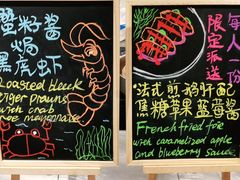 蟹籽酱
焗
黑虎虾
Roasted black
tiger prawns
with crab
roe mayonnaise
每人一份
限定派送
法式煎鸡肝配
焦糖苹果蓝莓酱
French fried foie
with caramelized apple
and blueberry sauce